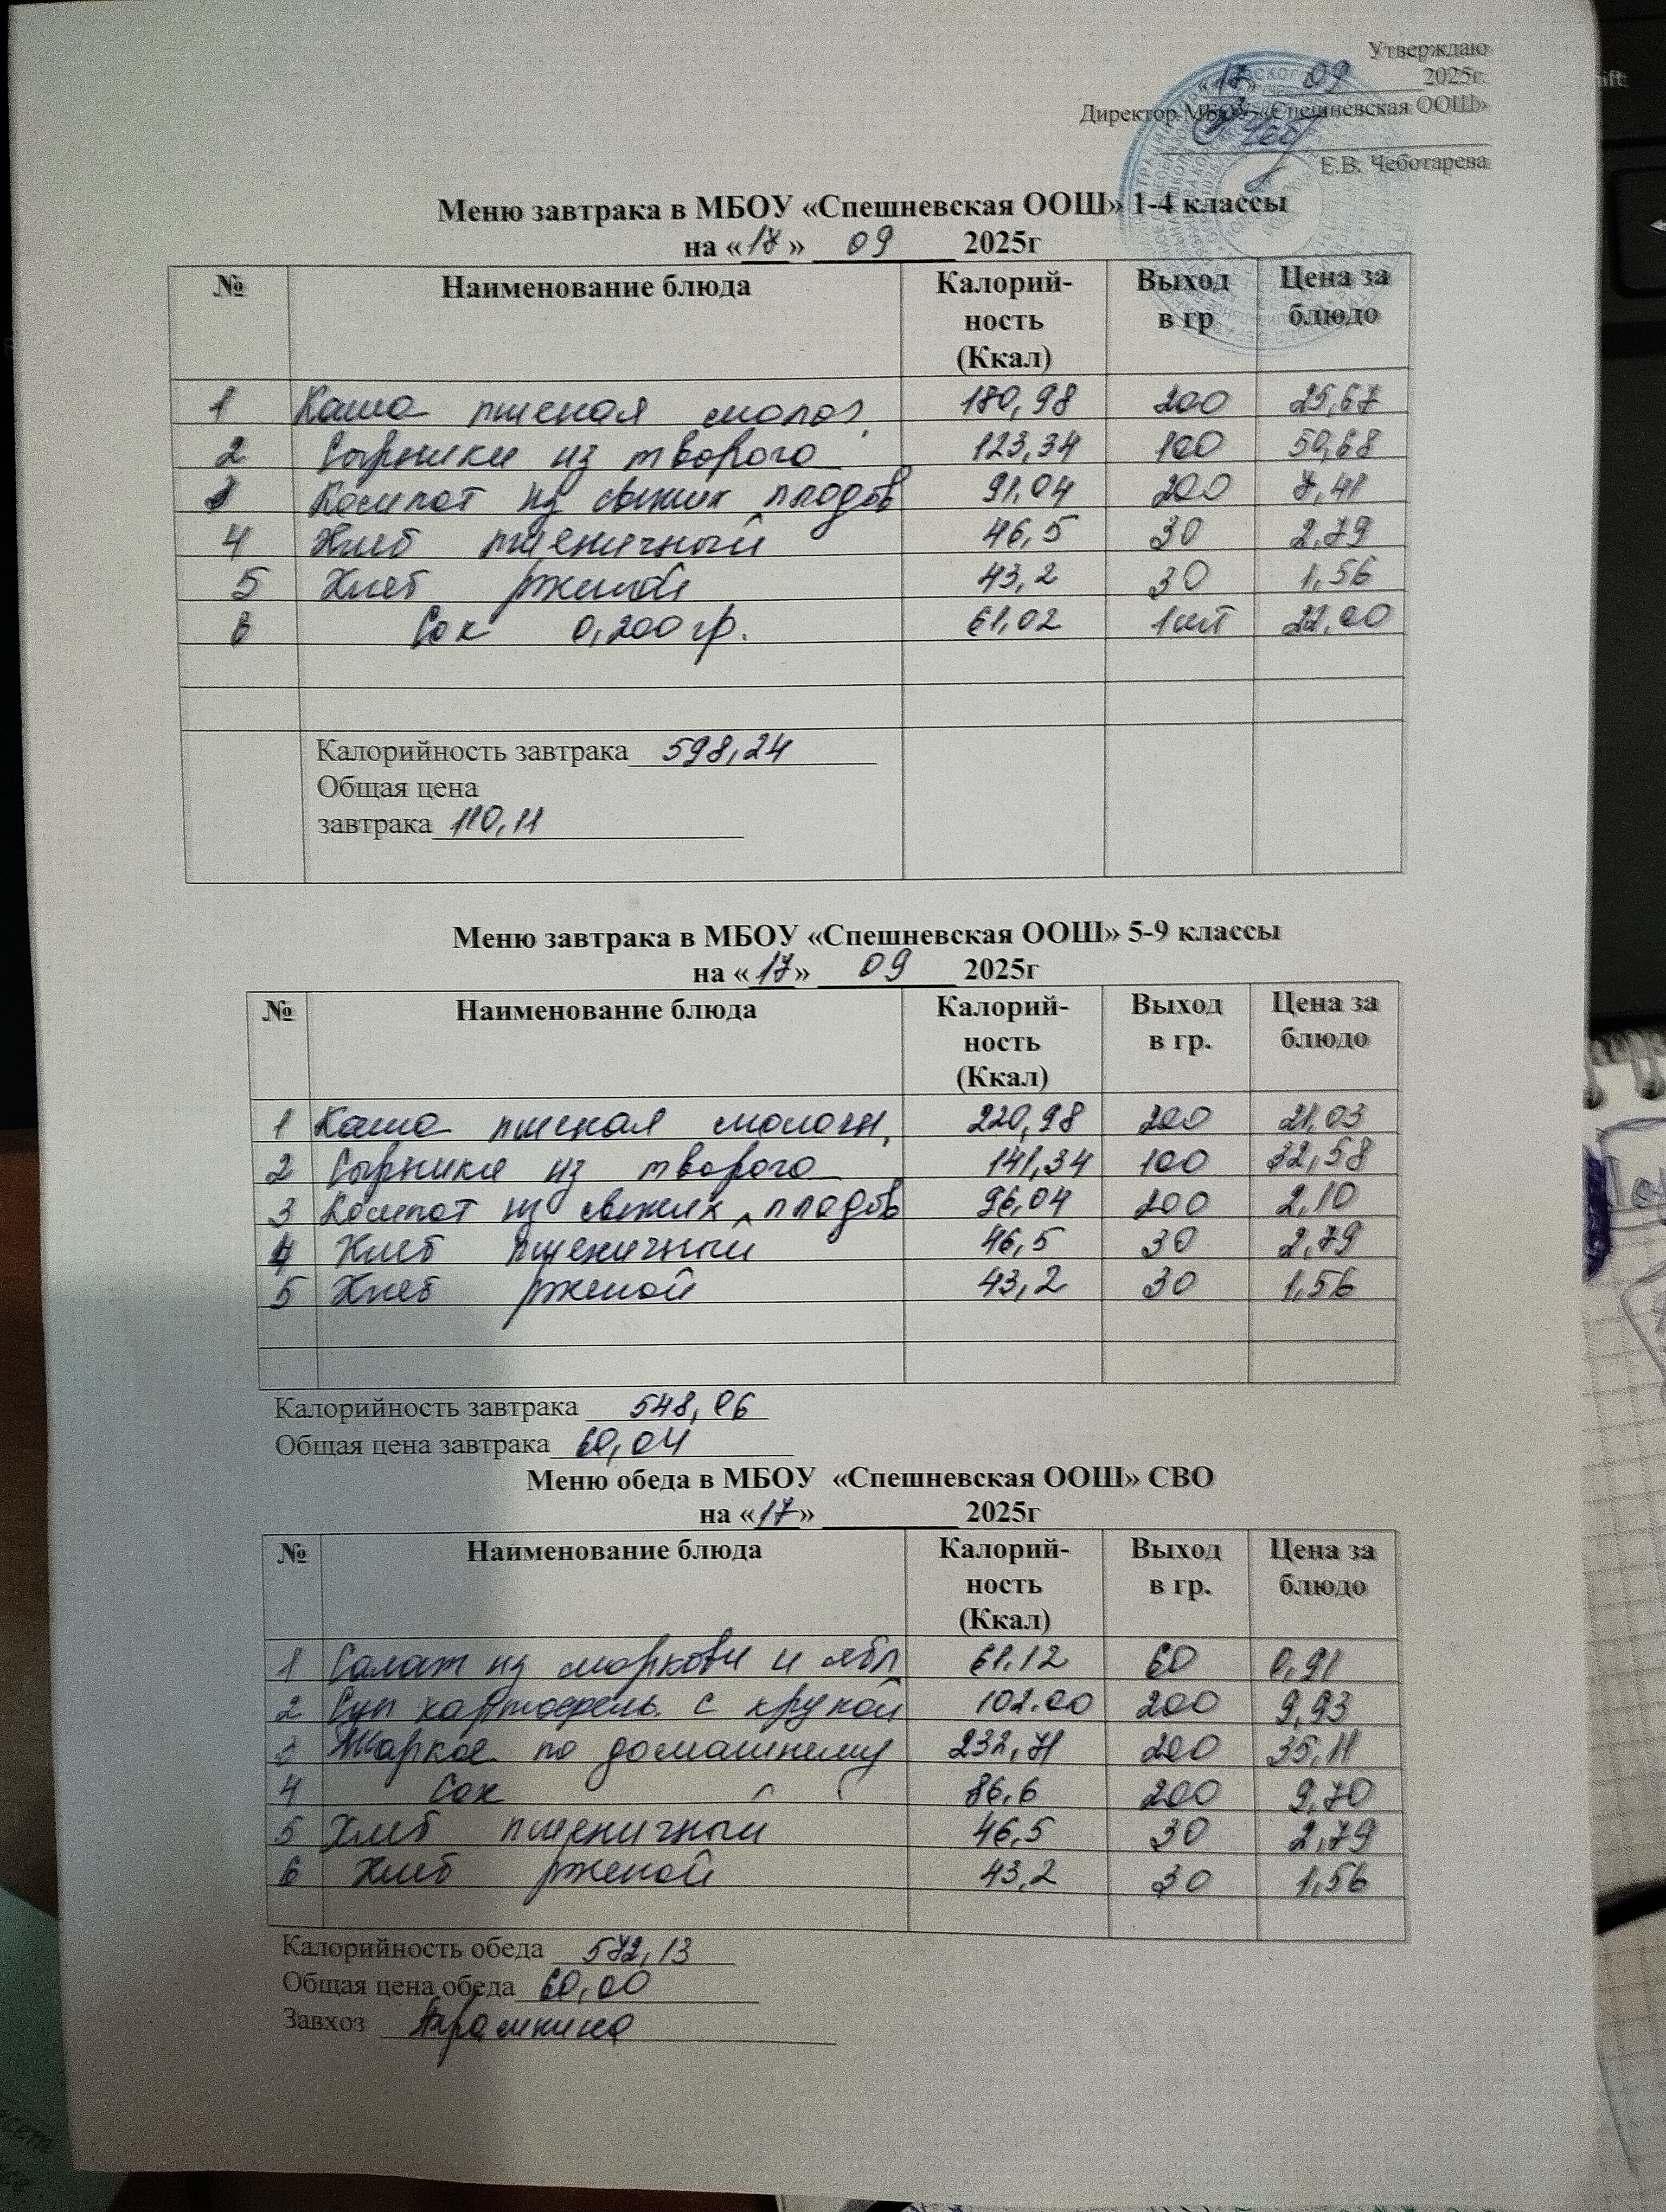 Утверждаю
«17» 09 2025г.
Директор МБОУ «Спешневская ООШ»
Е.В. Чеботарева
Меню завтрака в МБОУ «Спешневская ООШ» 1-4 классы
на «17» 09 2025г
№ Наименование блюда Калорий-ность (Ккал) Выход в гр Цена за блюдо
1 Каша пшеная молоч. 180,98 200 25,67
2 Сырники из творога 123,34 100 50,68
3 Компот из свежих плодов 91,04 200 7,41
4 Хлеб пшеничный 46,5 30 2,79
5 Хлеб ржаной 43,2 30 1,56
6 Сок 0,200 гр. 61,02 1шт 22,00
Калорийность завтрака 598,24
Общая цена
завтрака 110,11
Меню завтрака в МБОУ «Спешневская ООШ» 5-9 классы
на «17» 09 2025г
№ Наименование блюда Калорий-ность (Ккал) Выход в гр. Цена за блюдо
1 Каша пшеная молочн. 220,98 200 21,03
2 Сырники из творога 141,34 100 32,58
3 Компот из свежих плодов 96,04 200 2,10
4 Хлеб пшеничный 46,5 30 2,79
5 Хлеб ржаной 43,2 30 1,56
Калорийность завтрака 548,06
Общая цена завтрака 60,04
Меню обеда в МБОУ «Спешневская ООШ» СВО
на «17» 2025г
№ Наименование блюда Калорий-ность (Ккал) Выход в гр. Цена за блюдо
1 Салат из моркови и ябл 61.12 60 0,91
2 Суп картофель. с крупой 102.00 200 9,93
3 Жаркое по домашнему 232,71 200 35,11
4 Сок 86.6 200 9,70
5 Хлеб пшеничный 46,5 30 2,79
6 Хлеб ржаной 43,2 30 1,56
Калорийность обеда 572,13
Общая цена обеда 60,00
Завхоз